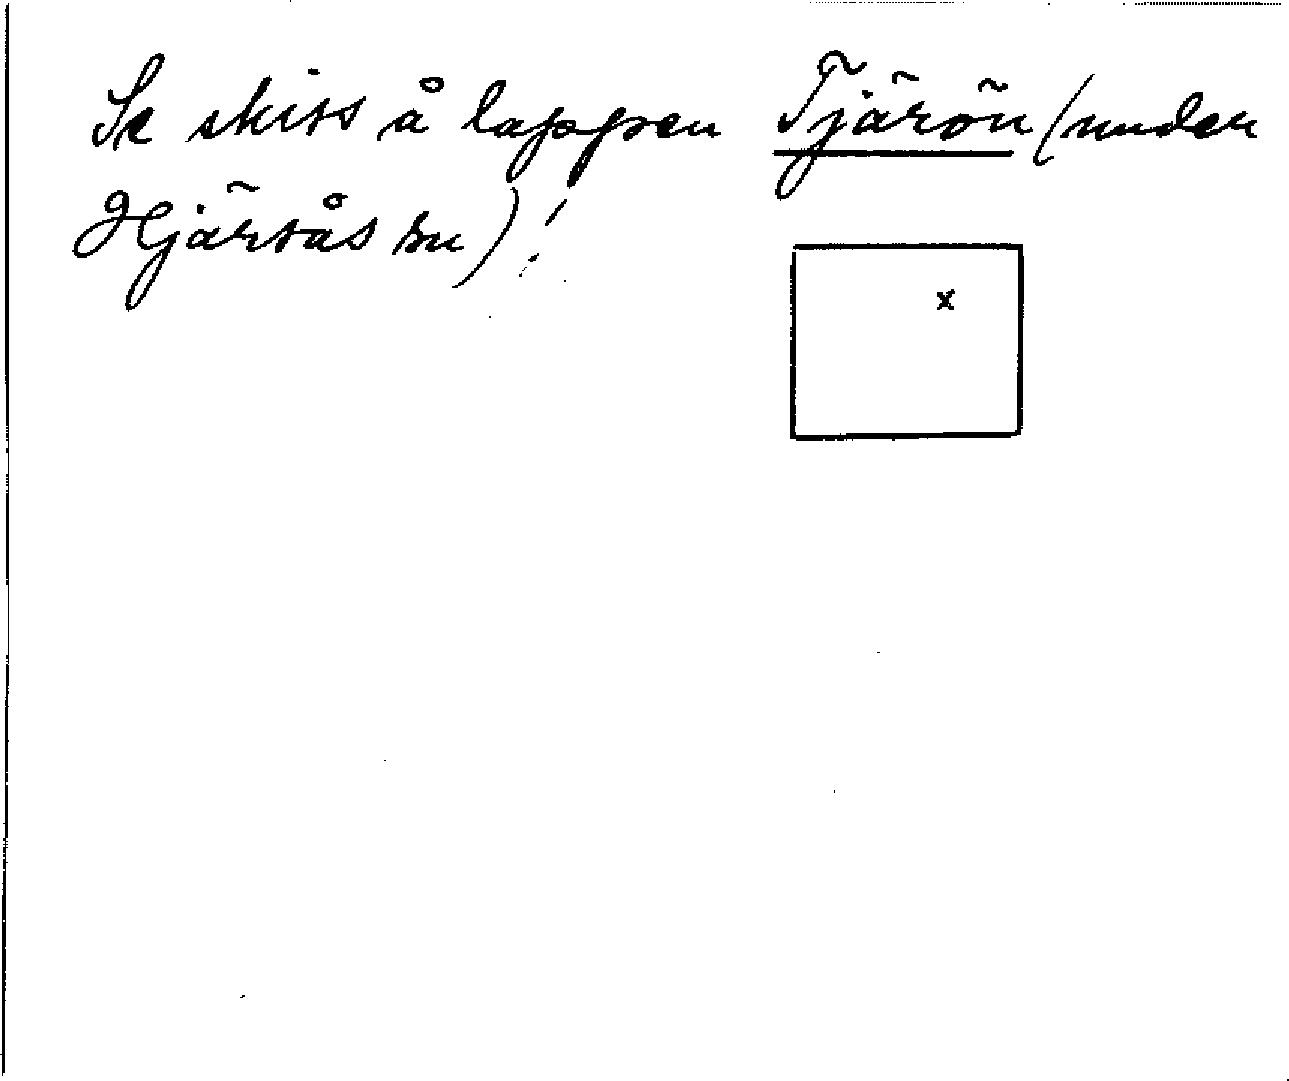 Se skiss å lappen Tjärön (under
Hjärsås sn)!
x